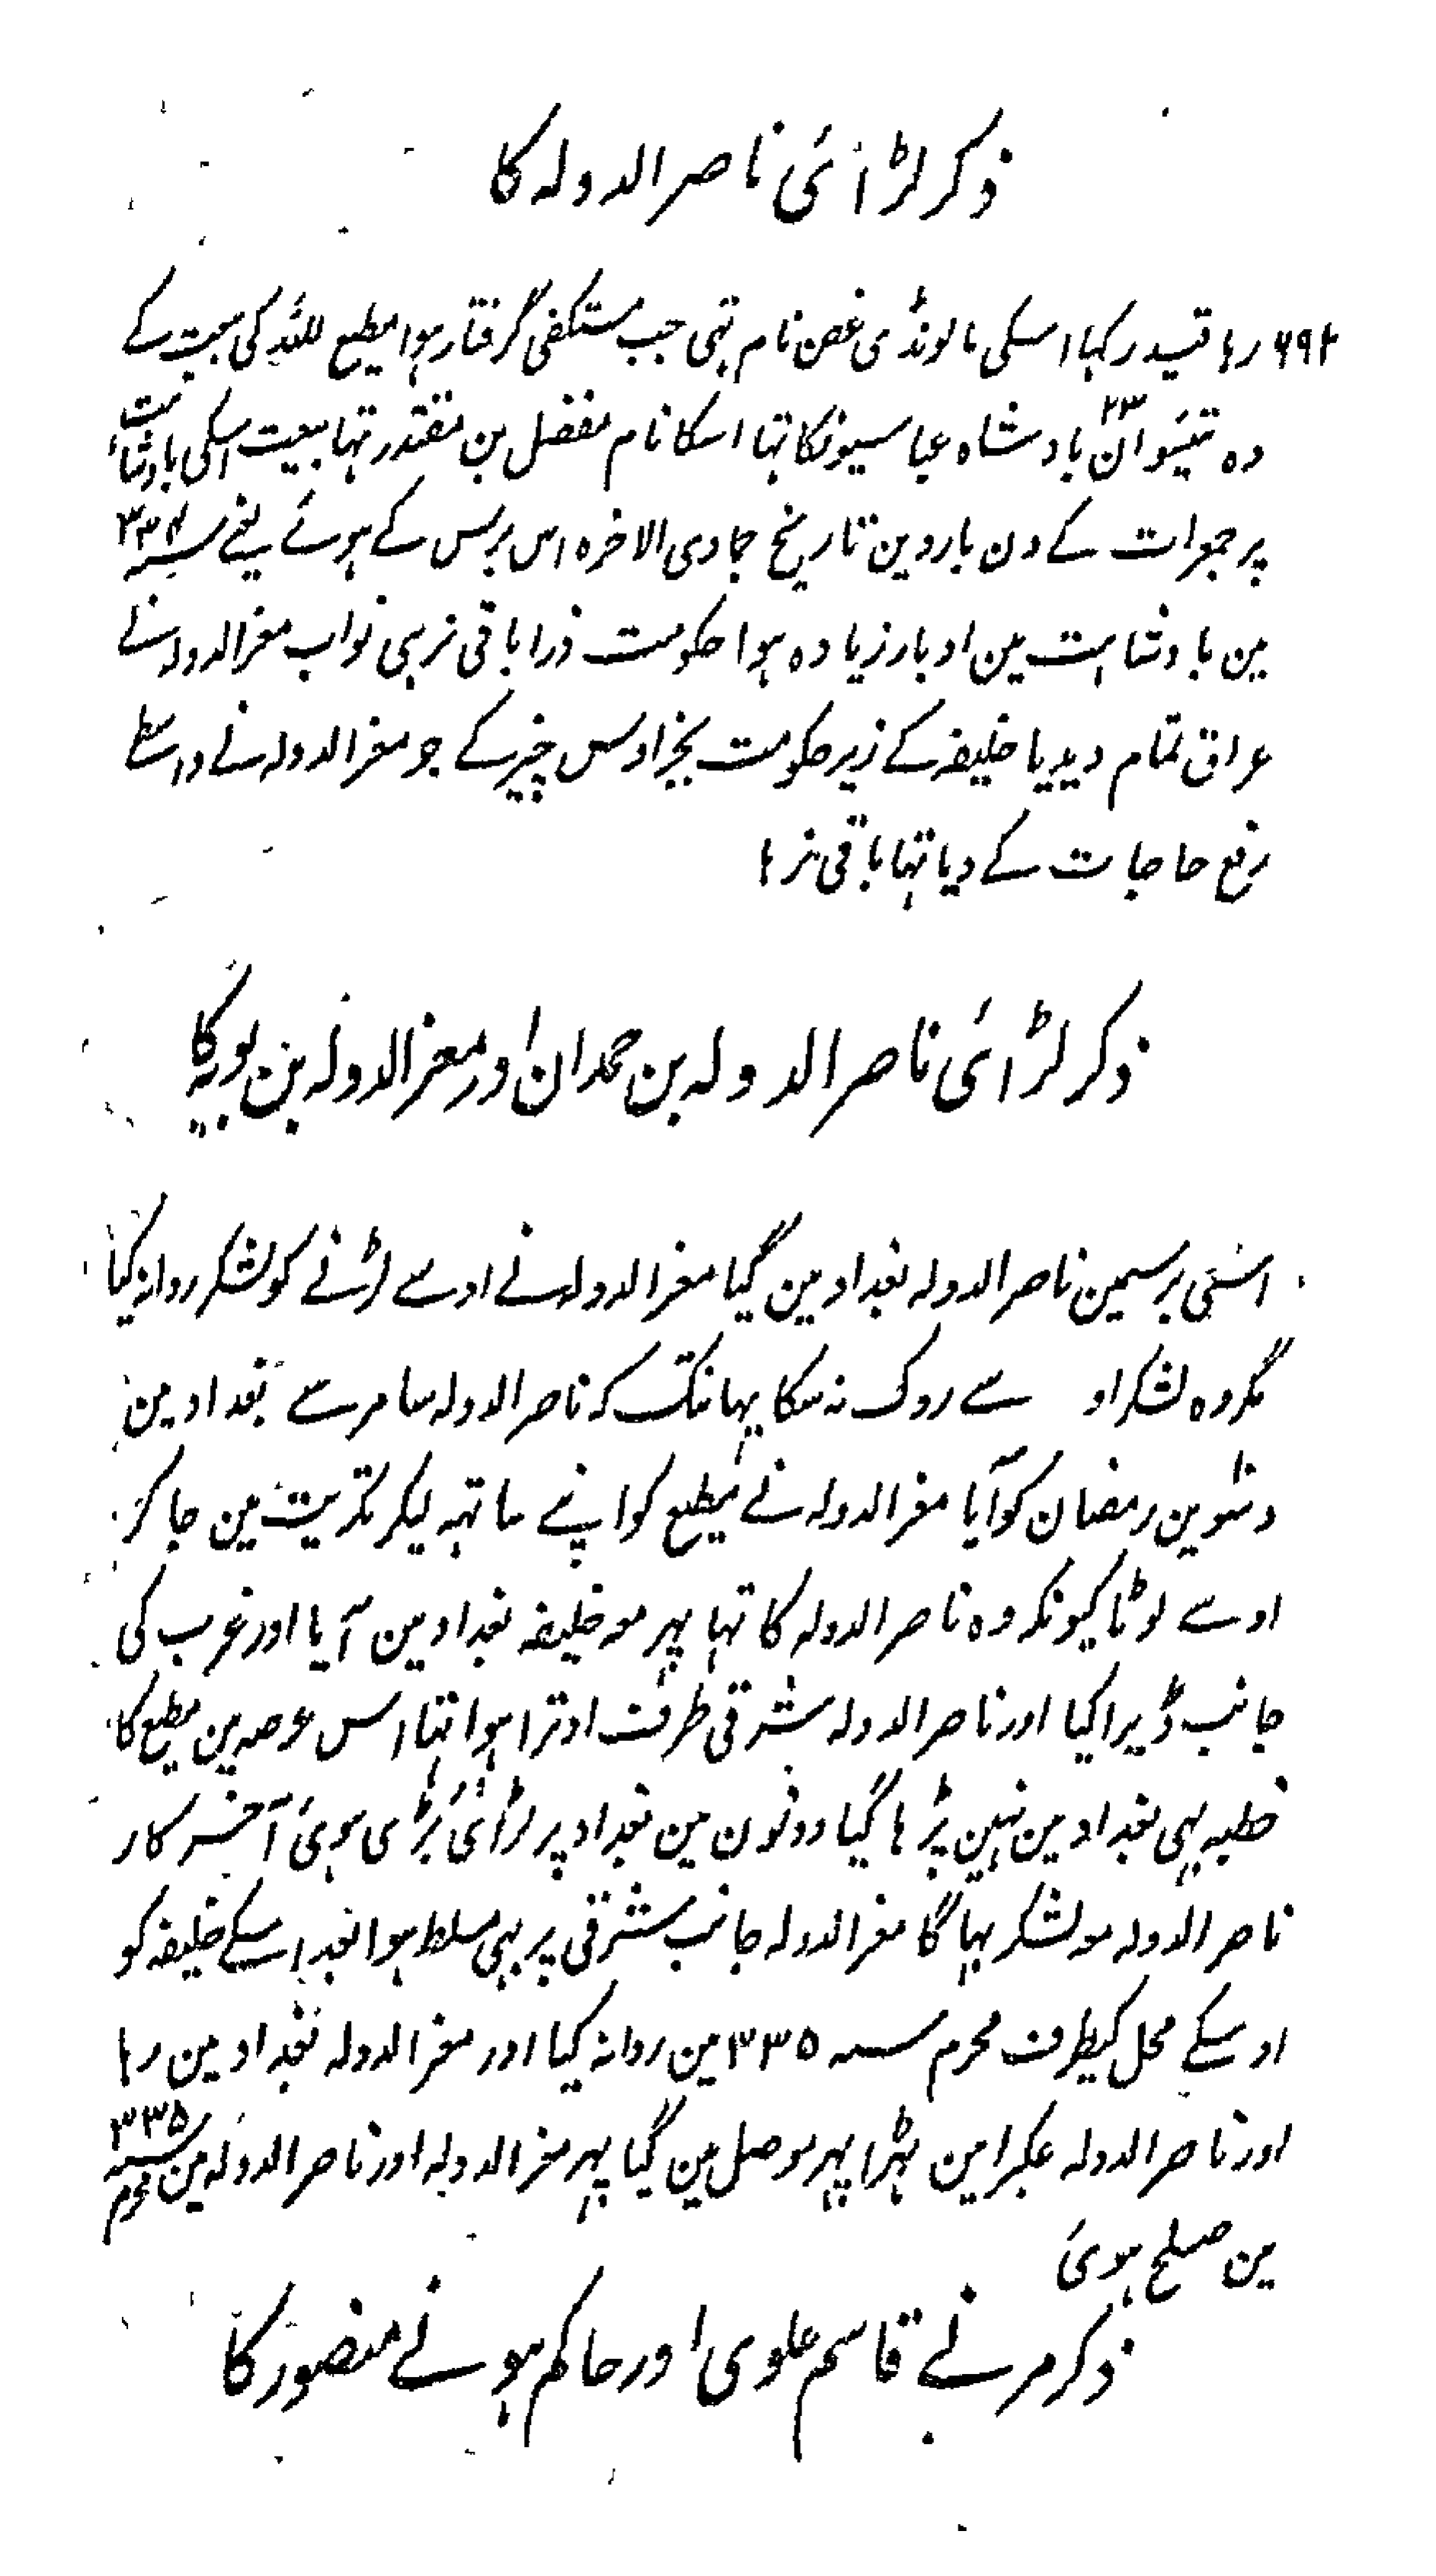 ذکر لڑائی ناصر الدولہ کا
۶۹۲ رہا قید رکہا اسکی ما لونڈی غصن نام تہی جب مستکفی گرفتار ہوا مطیع للہ کی بیعت کے
وہ تیئیسواں ۲۳ بادشاہ عباسیونکا تہا اسکا نام مفضل بن مقتدر تہا بیعت اسکی بادشاہت
پر جمعرات کے دن بارہوین تاریخ جمادی الاخرہ اس برس کے ہوئے یعنے سنہ ۳۳۴
مین بادشاہت مین ادبار زیادہ ہوا حکومت ذرا باقی نرہی نواب معز الدولہ نے
عراق تمام دیدیا خلیفہ کے زیر حکومت بجز اوس چیز کے جو معز الدولہ نے واسطے
رفع حاجات کے دیا تہا باقی نرہا
ذکر لڑائی ناصر الدولہ بن حمدان اور معز الدولہ بن بویہ کا
اسی برسمین ناصر الدولہ بغداد مین گیا معز الدولہ نے اوسے لڑنے کو لشکر روانہ کیا
مگر وہ لشکر او سے روک نہ سکا یہانتک کہ ناصر الدولہ سامر سے بغداد مین
دسوین رمضان کو آیا معز الدولہ نے مطیع کو اپنے ساتہہ لیکر تکریت مین جا کر
اوسے لوٹا کیونکہ وہ ناصر الدولہ کا تہا پہر معہ خلیفہ بغداد مین آیا اور غرب کی
جانب ڈیرا کیا اور ناصر الدولہ شرقی طرف اوترا ہوا تہا اس عرصہ مین مطیع کا
خطبہ بہی بغداد مین نہین پڑہا گیا دونون مین بغداد پر لڑائی بڑی ہوئی آخر کار
ناصر الدولہ معہ لشکر بہاگا معز الدولہ جانب شرقی پر بہی مسلط ہوا بعد اسکے خلیفہ کو
اوسکے محل کیطرف محرم سنہ ۳۳۵ مین روانہ کیا اور معز الدولہ بغداد مین رہا
اور ناصر الدولہ عکبرا مین ٹہرا پہر موصل مین گیا پہر معز الدولہ اور ناصر الدولہ مین محرم سنہ ۳۳۵
مین صلح ہوئی
ذکر مرنے قاسم علوی اور حاکم ہونے منصور کا